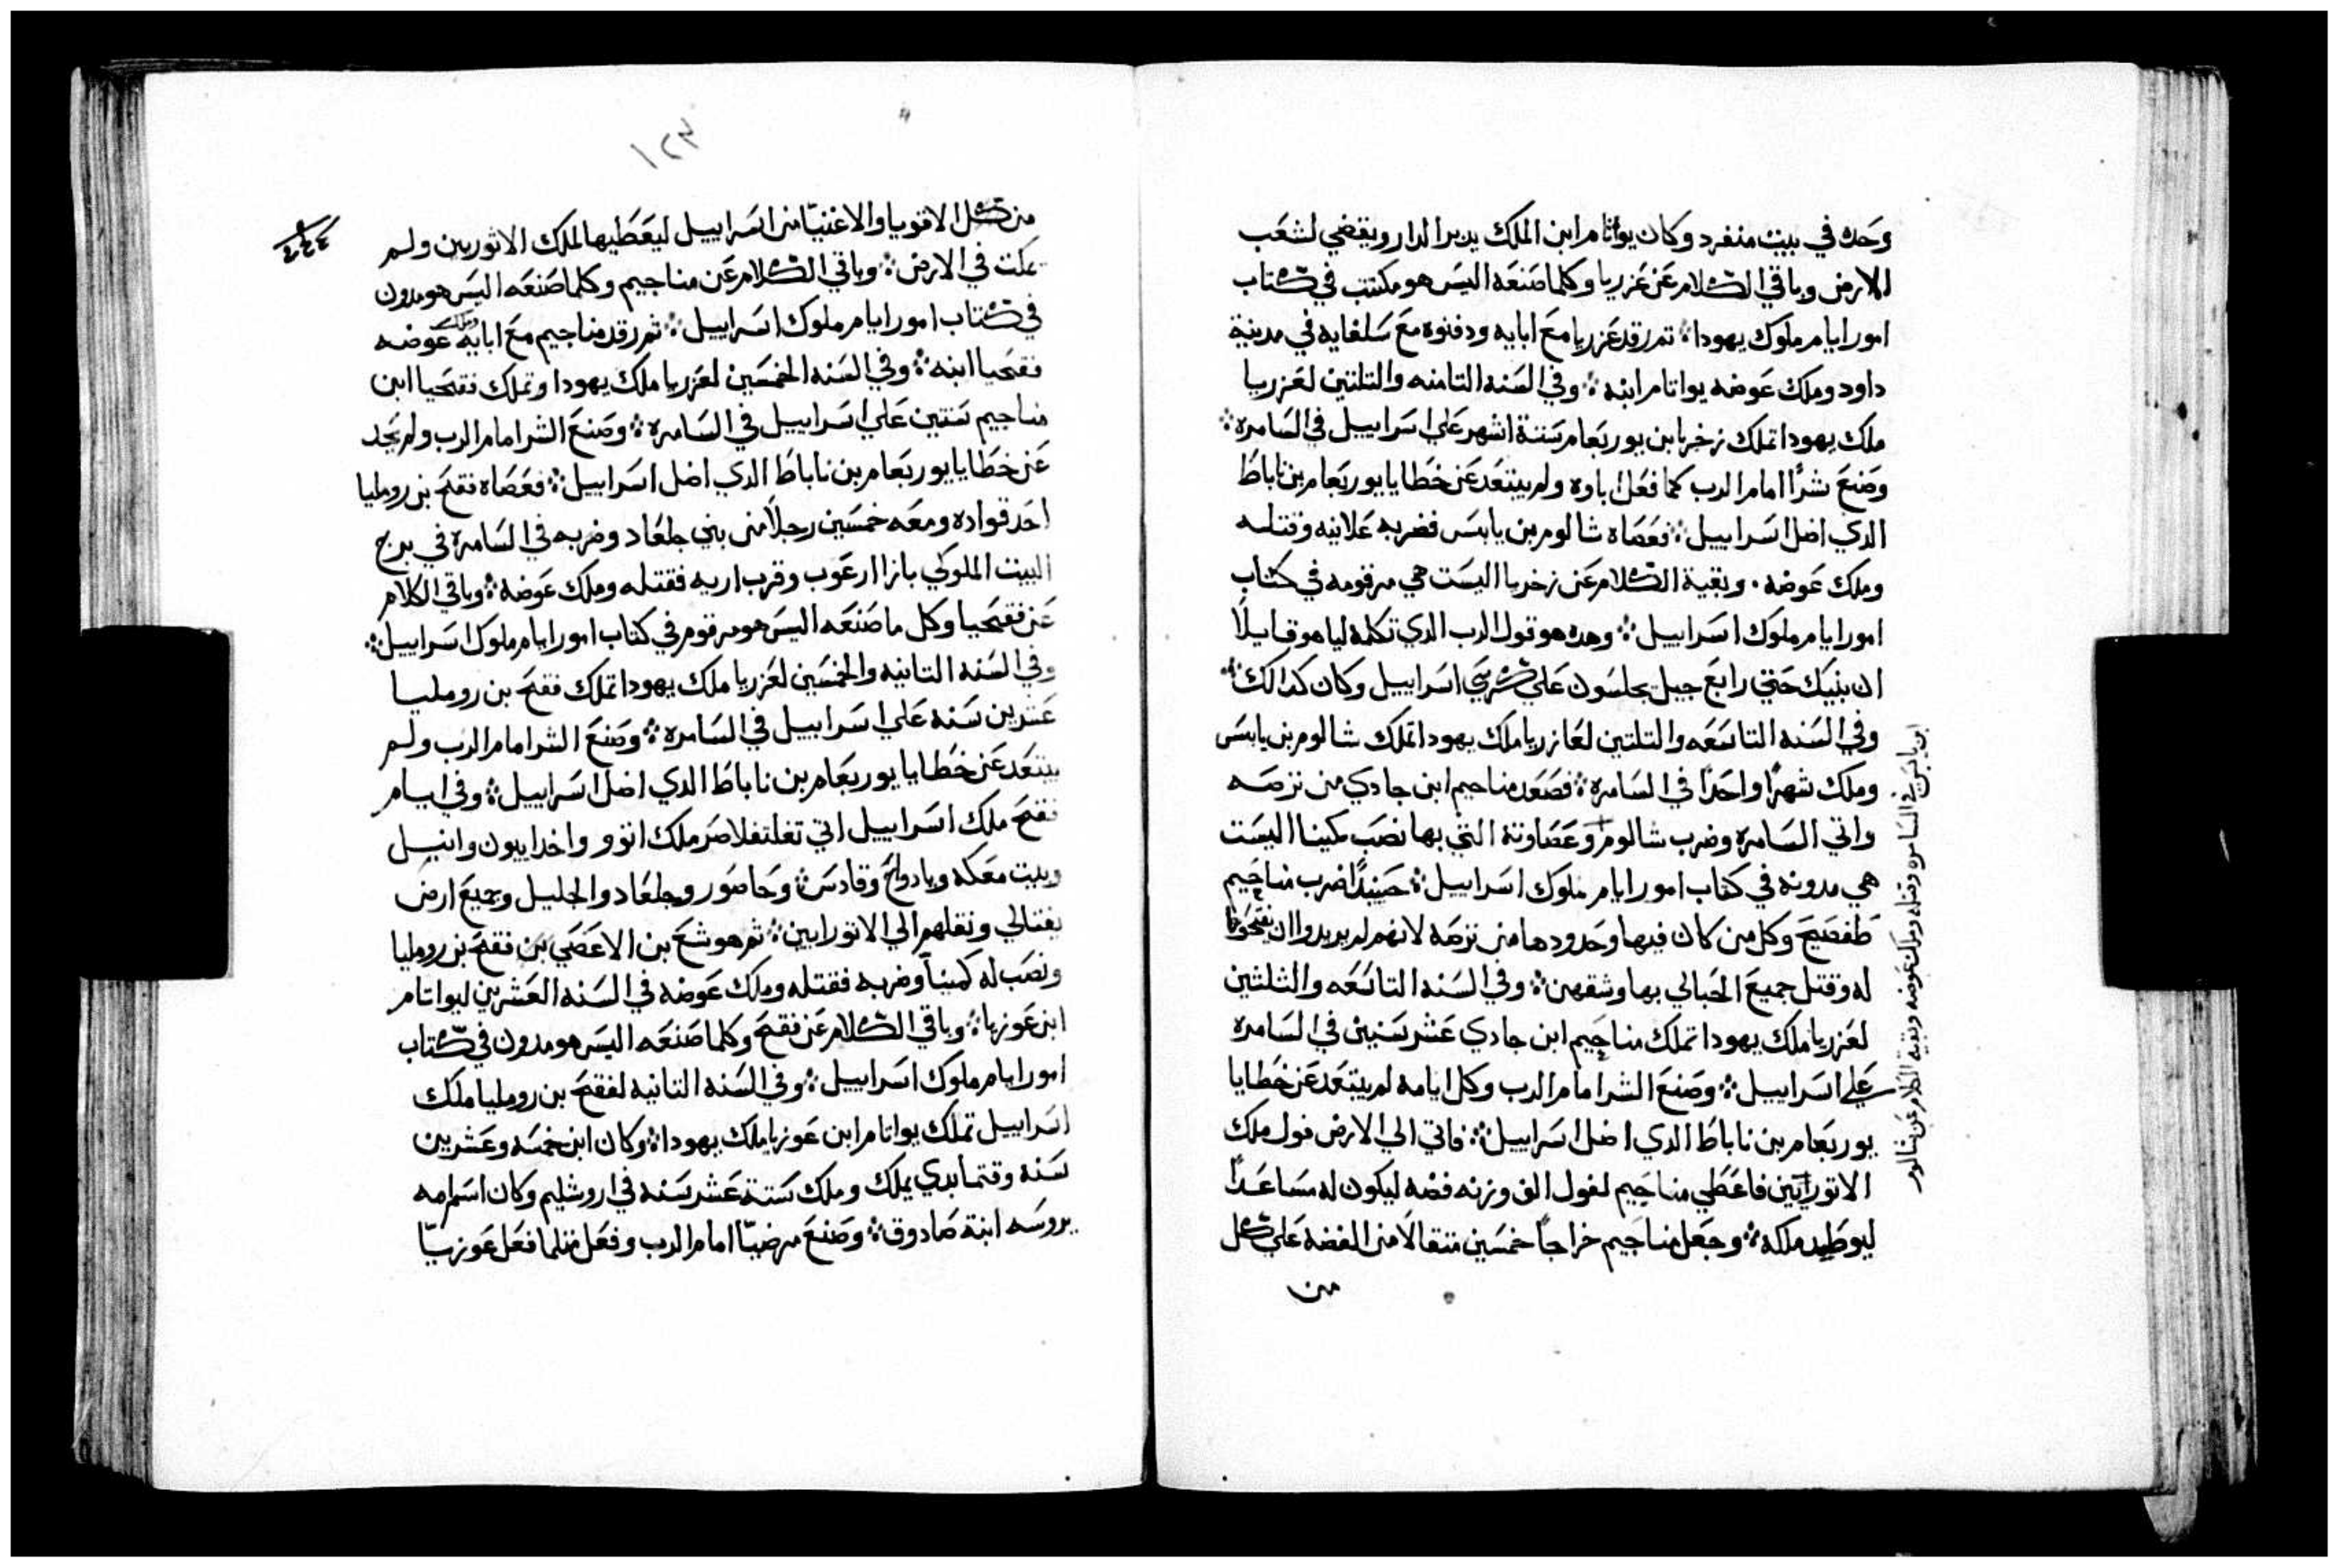 وحده في بيت منفرد وكان يواتام ابن الملك يدبر الدار ويقضي لشعب
الارض وباقي الكلام عن عزريا وكلما صنعه اليس هو مكتتب في كتاب
امور ايام ملوك يهودا ⁘ تم رقد عزريا مع ابايه ودفنوه مع سلفايه في مدينة
داود وملك عوضه يواتام ابنه ⁘ وفي السنه التامنه والتلتين لعزريا
ملك يهودا تملك زخريا بن يوربعام ستة اشهر علي اسراييل في السامره ⁘
وصنع شرًا امام الرب كما فعل اباوه ولم يبتعد عن خطايا يوربعام بن ناباط
الدي اضل اسراييل ⁘ فعصاه شالوم بن يابس فضربه علانيه وقتله
وملك عوضه . وبقية الكلام عن زخريا اليست هي مرقومه في كتاب
امور ايام ملوك اسراييل ⁘ وهده هو قول الرب الدي تكلم لياهو قايلًا
ان بنيك حتي رابع جيل يجلسون علي كرسي اسراييل وكان كدالك ⁘
وفي السنه التاسعه والتلتين لعازريا ملك يهودا تملك شالوم بن يابس
وملك شهرًا واحدًا في السامره ⁘ فصعد مناحيم ابن جادي من ترصه
واتي السامره وضرب شالوم وعصاوته التي بها نصب كمينا اليست
هي مدونه في كتاب امور ايام ملوك اسراييل ⁘ حينيدًا ضرب مناجيم
طفصيح وكل من كان فيها وحدودها من ترصه لانهم لم يريدوا ان يفتحوا
له وقتل جميع الحبالي بها وشقهن ⁘ وفي السنه التاسعه والثلثين
لعزريا ملك يهودا تملك مناجيم ابن جادي عشر سنين في السامره
علي اسراييل ⁘ وصنع الشر امام الرب وكل ايامه لم يبتعد عن خطايا
يوربعام بن ناباط الدي اضل اسراييل ⁘ فاتي الي الارض فول ملك
الاتوريين فاعطي مناجيم لفول الف وزنه فضه ليكون له مساعدًا
ليوطيد ملكه ⁘ وجعل مناجيم خراجًا خمسين متقالًا من الفضه علي كل
من
ابن يابس في السامره وقتله وملك عوضه وبقية الكلام عن شالوم
١٢٣
من كل الاقويا والاغنيا من اسراييل ليعطيها لملك الاثوريين ولم
يمكت في الارض ⁘ وباقي الكلام عن مناجيم وكلما صنعه اليس هو مدون
في كتاب امور ايام ملوك اسراييل ⁘ تم رقد مناجيم مع ابايه وملك عوضه
فقحيا ابنه ⁘ وفي السنه الخمسين لعزريا ملك يهودا وتملك فقحيا ابن
مناجيم سنتين علي اسراييل في السامره ⁘ وصنع الشر امام الرب ولم يحد
عن خطايا يوربعام بن ناباط الدي اضل اسراييل ⁘ فعصاه فقح بن روملیا
احد قواده ومعه خمسين رجلًا من بني جلعاد وضربه في السامرة في برج
البيت الملوكي بازا ارعوب وقرب اريه فقتله وملك عوضه ⁘ وباقي الكلام
عن فقحيا وكل ما صنعه اليس هو مرقوم في كتاب امور ايام ملوك اسراييل ⁘
وفي السنه التانيه والخمسين لعزريا ملك يهودا تملك فقح بن روملیا
عشرين سنه علي اسراييل في السامره ⁘ وصنع الشر امام الرب ولم
يبتعد عن خطايا يوربعام بن ناباط الدي اضل اسراييل ⁘ وفي ايام
فقح ملك اسراييل اتي تغلتفلاصر ملك اتور واخد اييون وانيل
وبيت معكه ويادواح وقادس ⁘ وحاصور وجلعاد والجليل وجميع ارض
يفتالي ونقلهم الي الاتورايين ⁘ تم هوشع بن الا عصي بن فقح بن روملیا
ونصب له كمينًا وضربه فقتله وملك عوضه في السنه العشرين ليواتام
ابن عوزيا ⁘ وباقي الكلام عن فقح وكلما صنعه اليس هو مدون في كتاب
امور ايام ملوك اسراييل ⁘ وفي السنه التانيه لفقح بن روملیا ملك
اسراييل تملك يواتام ابن عوزيا ملك يهودا ⁘ وكان ابن خمسه وعشرين
سنه وقتما بدي يملك وملك ستة عشر سنه في اروشليم وكان اسم امه
يروسه ابنة صادوق ⁘ وصنع مرضيًا امام الرب وفعل متلما فعل عوزيا